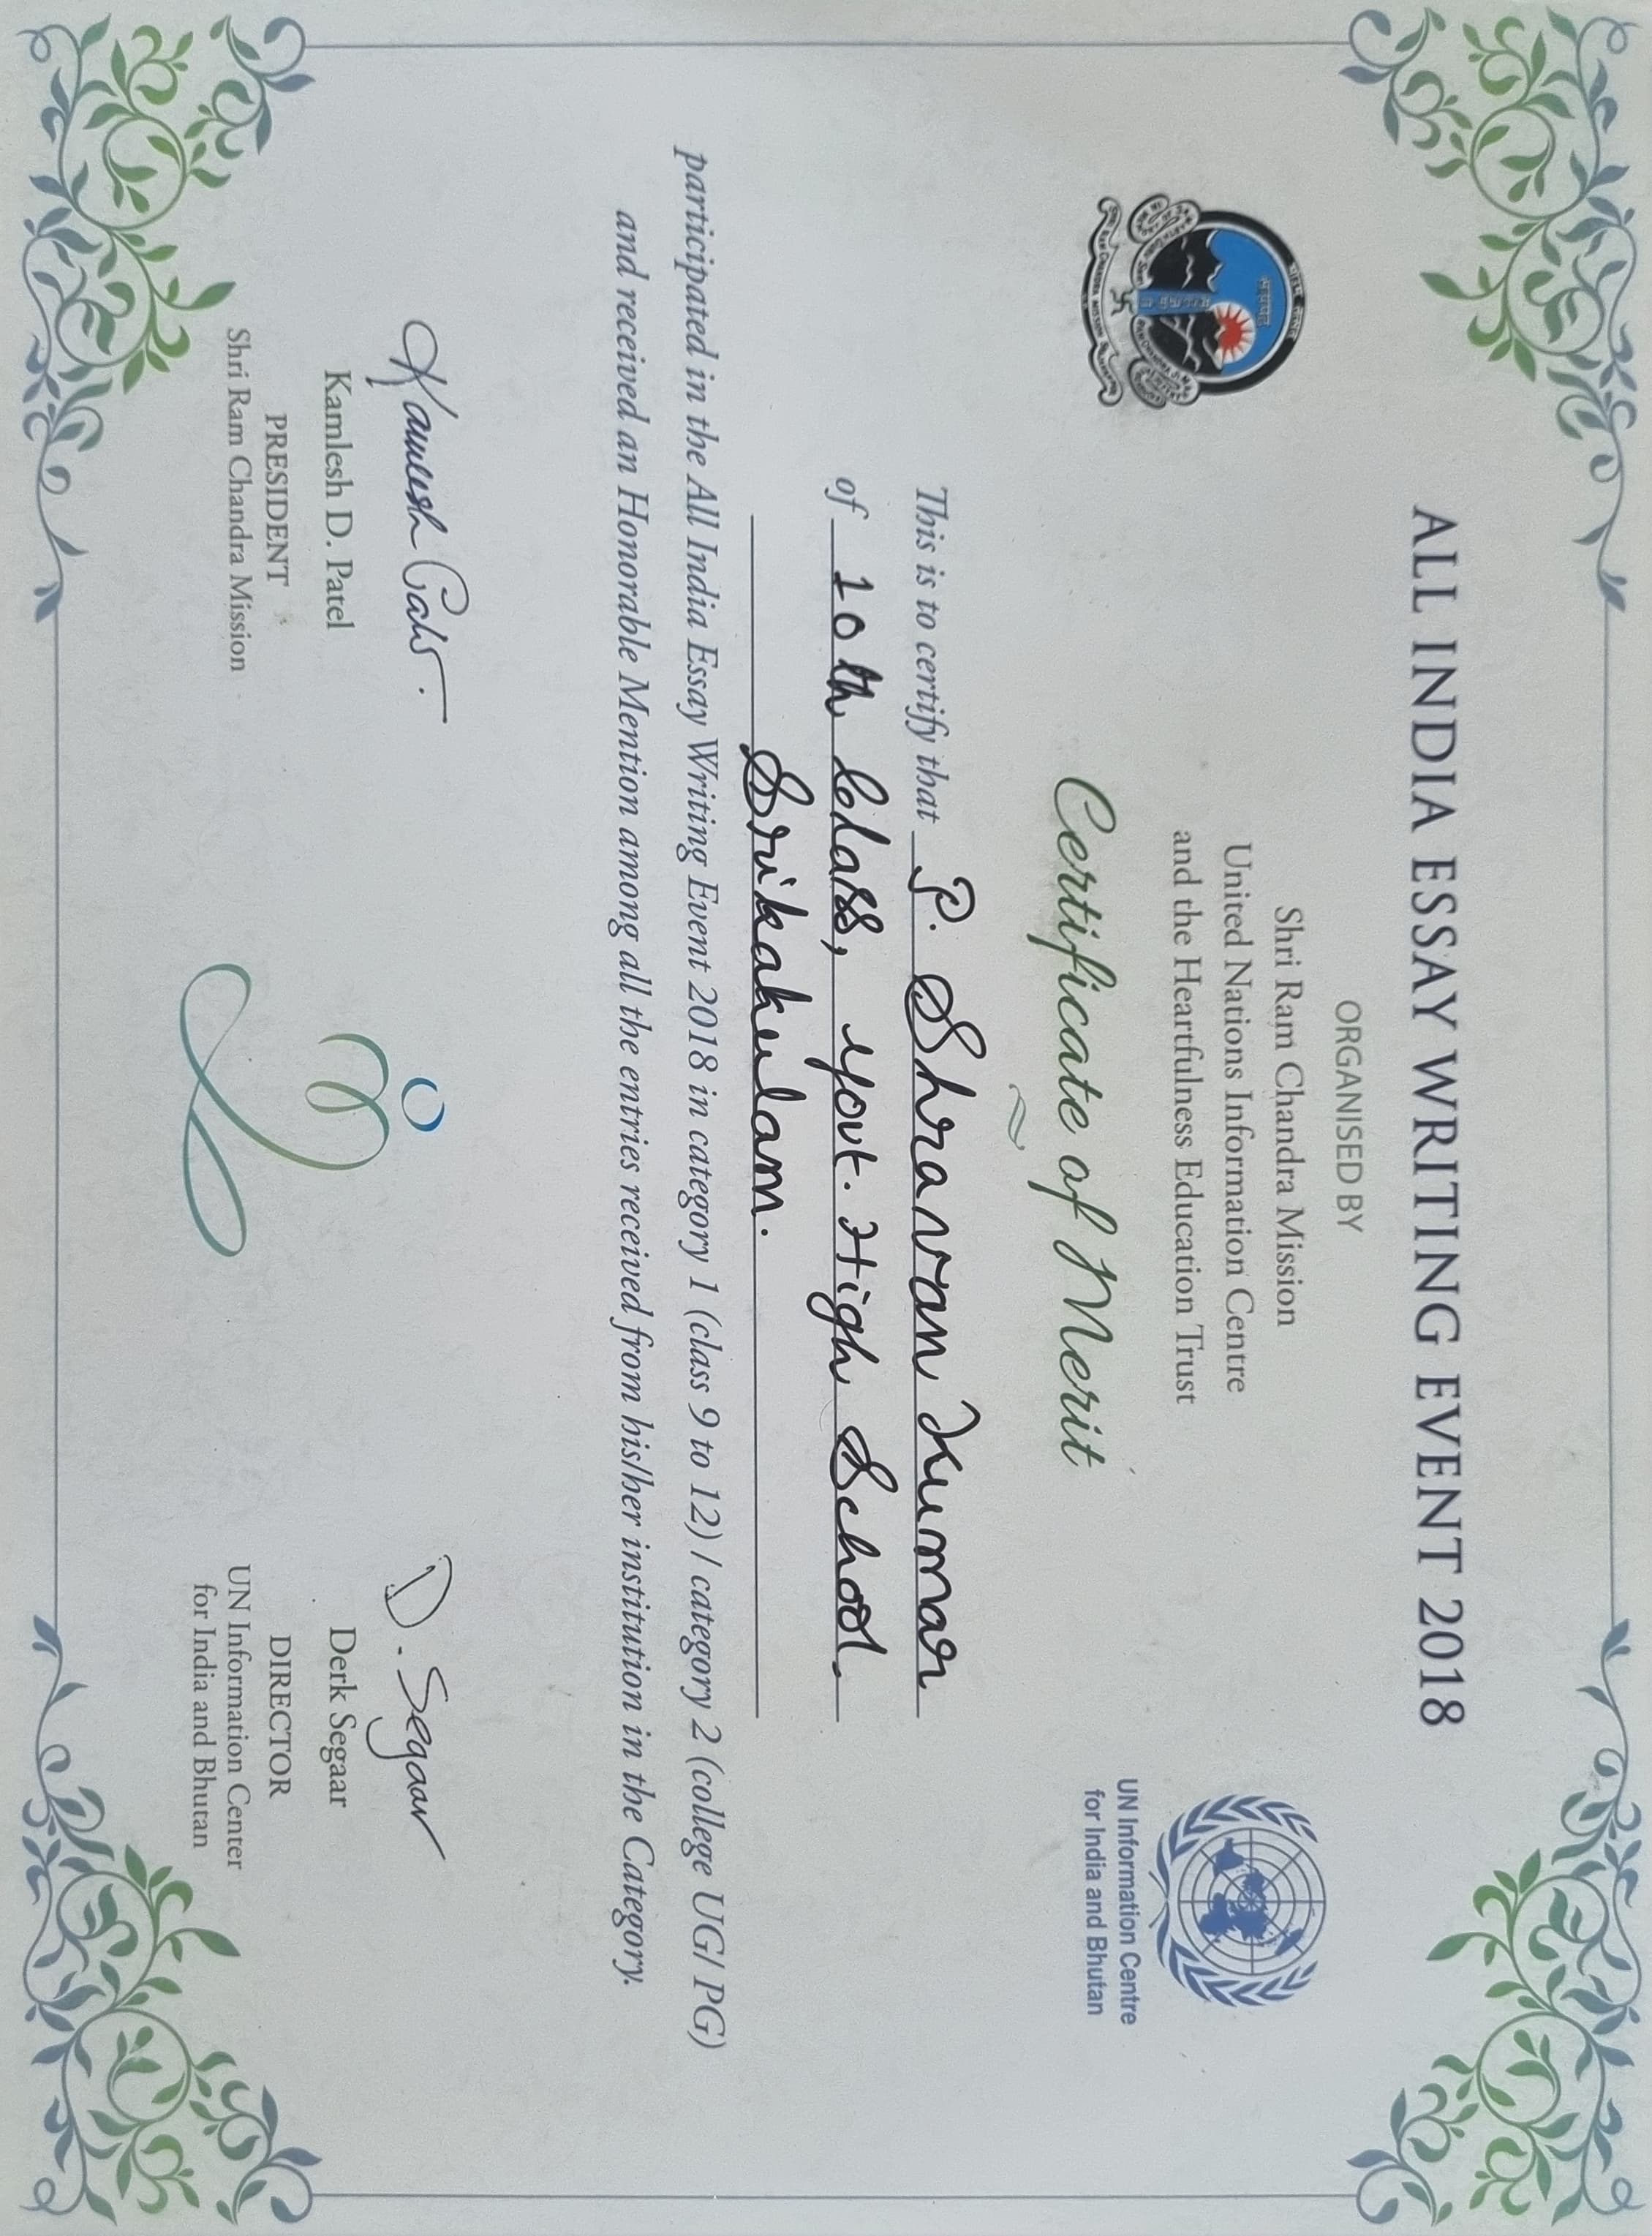 ALL INDIA ESSAY WRITING EVENT 2018
ORGANISED BY
Shri Ram Chandra Mission
United Nations Information Centre
and the Heartfulness Education Trust
UN Information Centre
for India and Bhutan
Certificate of Merit
This is to certify that P. Shravan Kumar
of 10th Class, Govt. High School
Srikakulam.
participated in the All India Essay Writing Event 2018 in category 1 (class 9 to 12) / category 2 (college UG/ PG)
and received an Honorable Mention among all the entries received from his/her institution in the Category.
D. Segaar
Kamlesh D. Patel
PRESIDENT
Shri Ram Chandra Mission
Derk Segaar
DIRECTOR
UN Information Center
for India and Bhutan